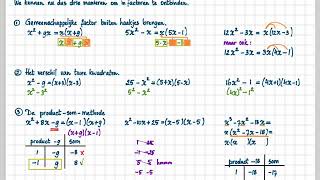 We kennen nu dus drie manieren om in factoren te ontbinden.
① Gemeenschappelijke factor buiten haakjes brengen.
x² + 9x = x(x+9) 5x² - x = x(5x-1) 12x² - 3x = x(12x-3)
maar ook:
12x² - 3x = 3x(4x-1)
② Het verschil van twee kwadraten.
x² - 9 = (x+3)(x-3) 25 - x² = (5+x)(5-x) 16x² - 1 = (4x+1)(4x-1)
x² - 3² 5² - x² (4x)² - 1²
③ De product-som-methode
x² + 8x - 9 = (x-1)(x+9) x² - 10x + 25 = (x-5)(x-5) x³ - 7x² - 18x =
= (x+9)(x-1) x(x² - 7x - 18) =
product -9 som
1 -9 -8
-1 9 8 √
-1 -25
-5 -5
product -18 som
1 -18 -17